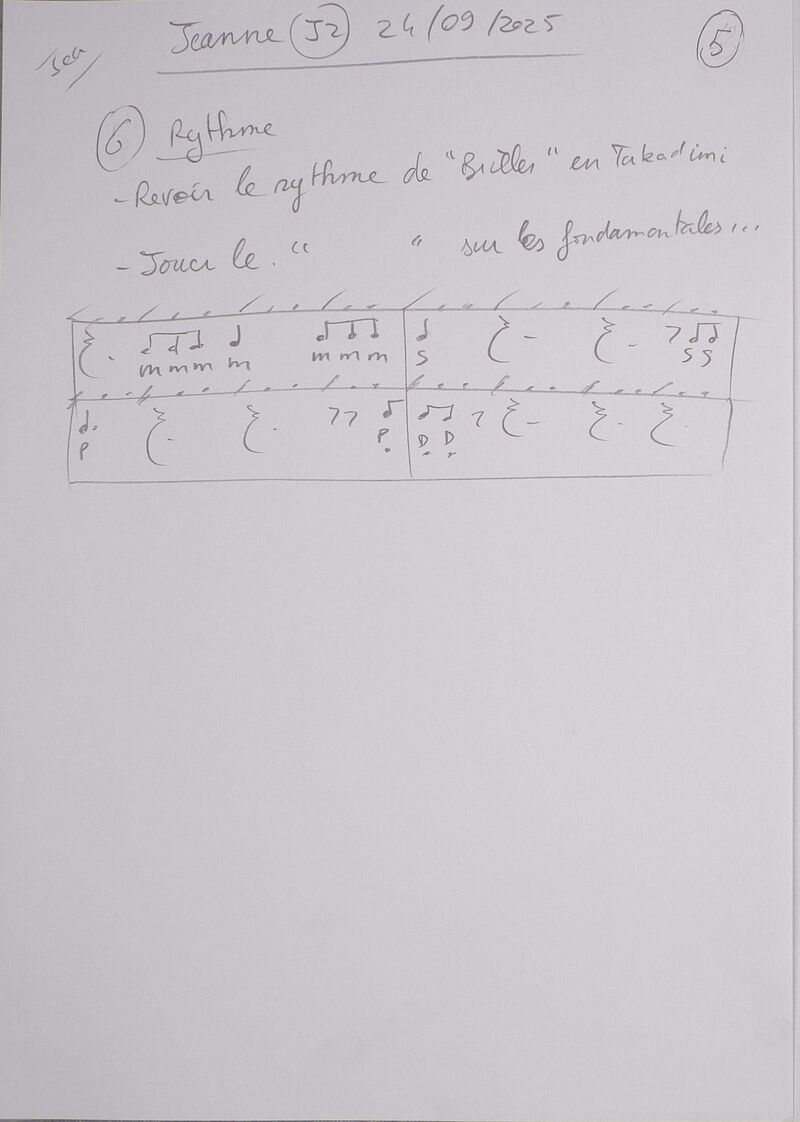 Jeanne (J2) 24/09/2025
5
6 Rythme
- Revoir le rythme de "Brilles" en Takadimi
- Jouer le. " " sur les fondamentales...
m m m m m m m S S S
P P D D